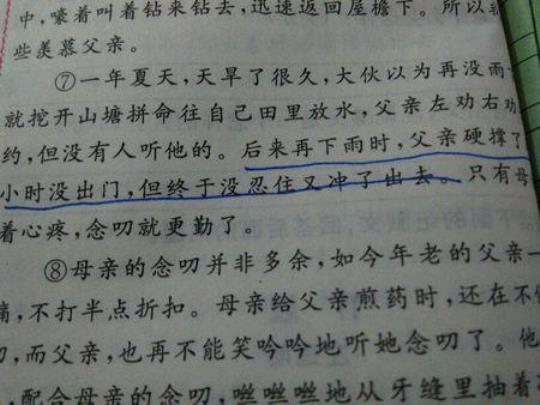 中，嚎着叫着钻来钻去，迅速返回屋檐下。所以
些羡慕父亲。
⑦一年夏天，天旱了很久，大伙以为再没雨
就挖开山塘拼命往自己田里放水，父亲左劝右劝
约，但没有人听他的。后来再下雨时，父亲硬撑了
小时没出门，但终于没忍住又冲了出去。只有母
着心疼，念叨就更勤了。
⑧母亲的念叨并非多余，如今年老的父亲一
痛，不打半点折扣。母亲给父亲煎药时，还在不
叨，而父亲，也再不能笑吟吟地听她念叨了。他
，配合母亲的念叨，咝咝咝地从牙缝里抽着